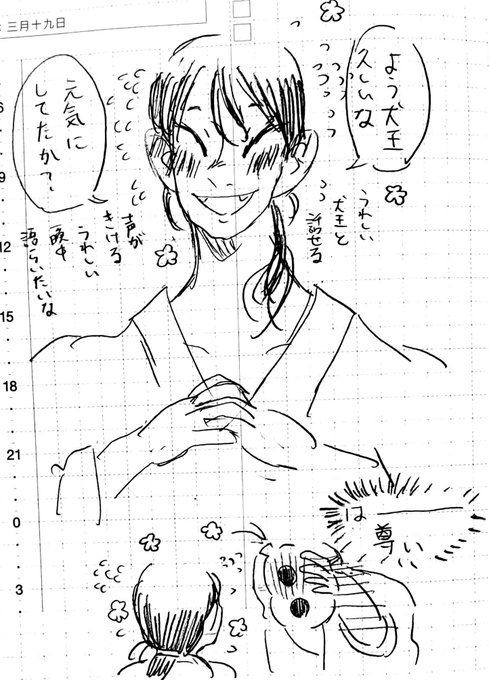 三月十九日
よう犬王
久しいな
うれしい
犬王と
話せる
元気に
してたか？
声が
きける
うれしい
語らいたいな
は
尊い
6
9
12
15
18
21
0
3